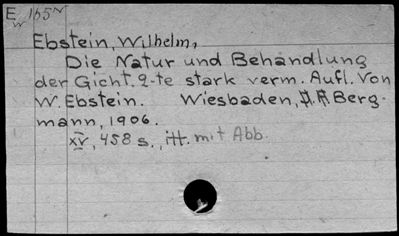 E 165
Ebstein, Wilhelm,
Die Natur und Behandlung
der Gicht. 2-te stark verm. Aufl. Von
W. Ebstein. Wiesbaden, Berg-
mann, 1906.
XV, 458 s., mit Abb.